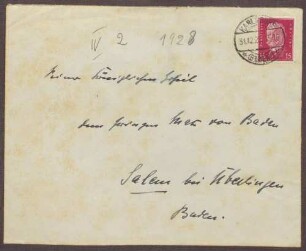 IV 2 1928
Seiner Königlichen Hoheit
dem Prinzen Max von Baden
Salem bei Überlingen
Baden.